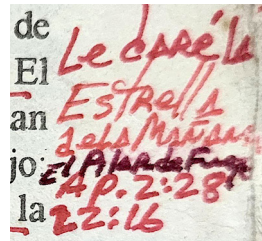 de
El
an
jo:
la
Le daré la
Estrella
de la Mañana
El Altar de Fuego
AP. 2:28
22:16